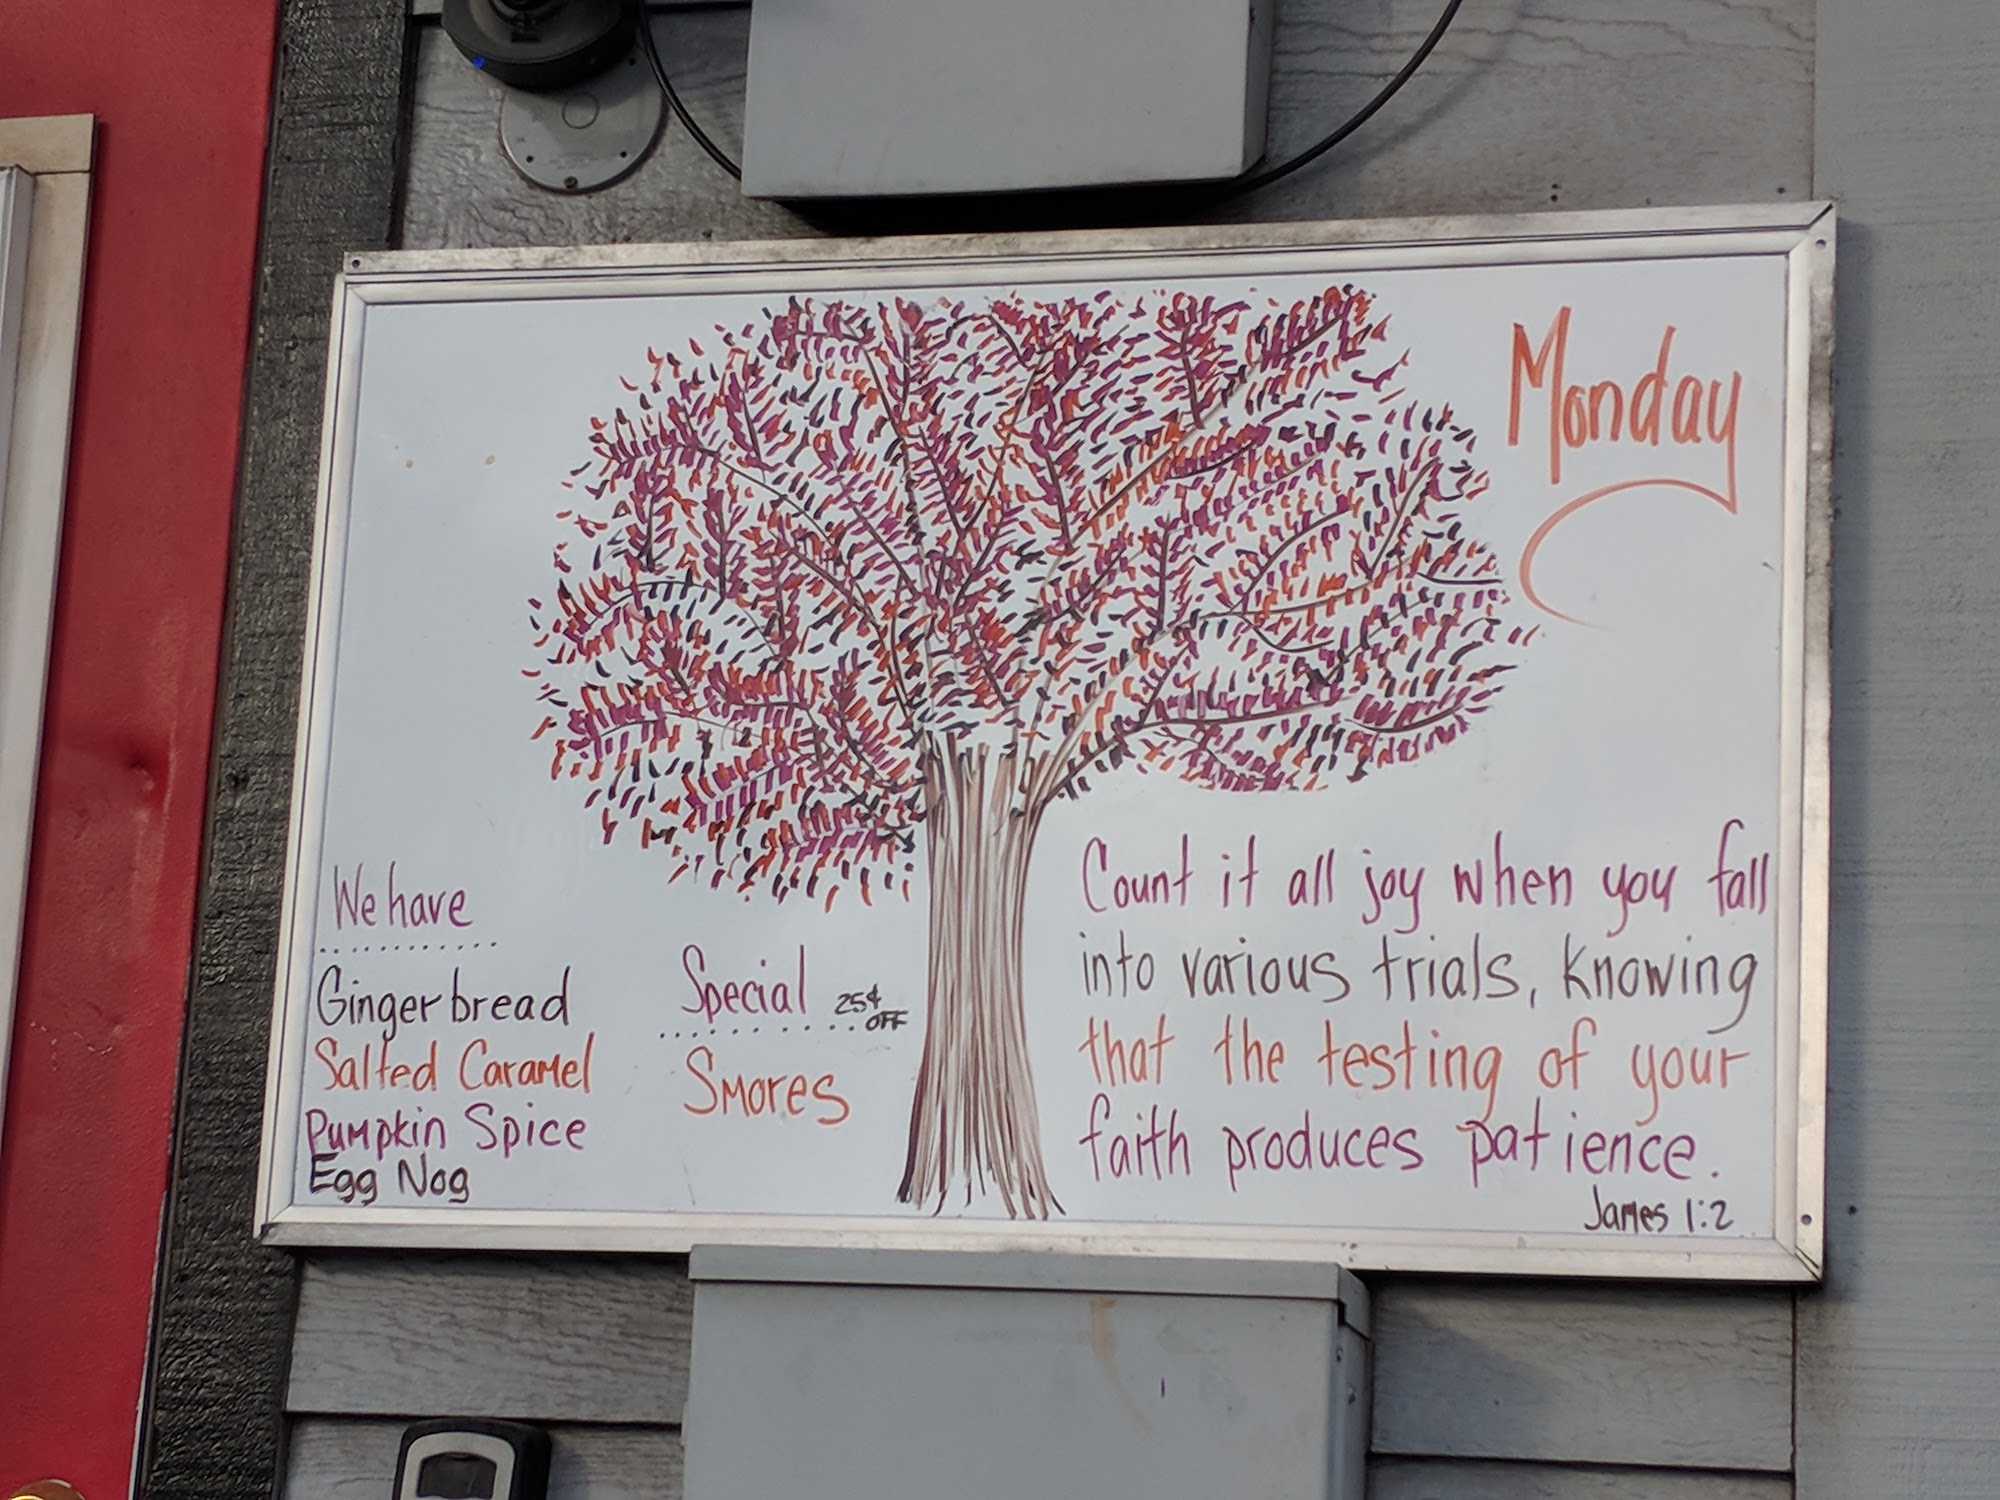 Monday
We have
Gingerbread
Salted Caramel
Pumpkin Spice
Egg Nog
Special 25¢ OFF
Smores
Count it all joy when you fall
into various trials, knowing
that the testing of your
faith produces patience.
James 1:2